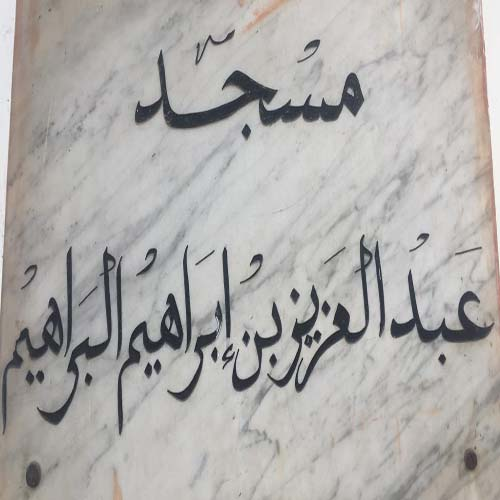 مسجد
عبد العزيز بن إبراهيم البراهيم